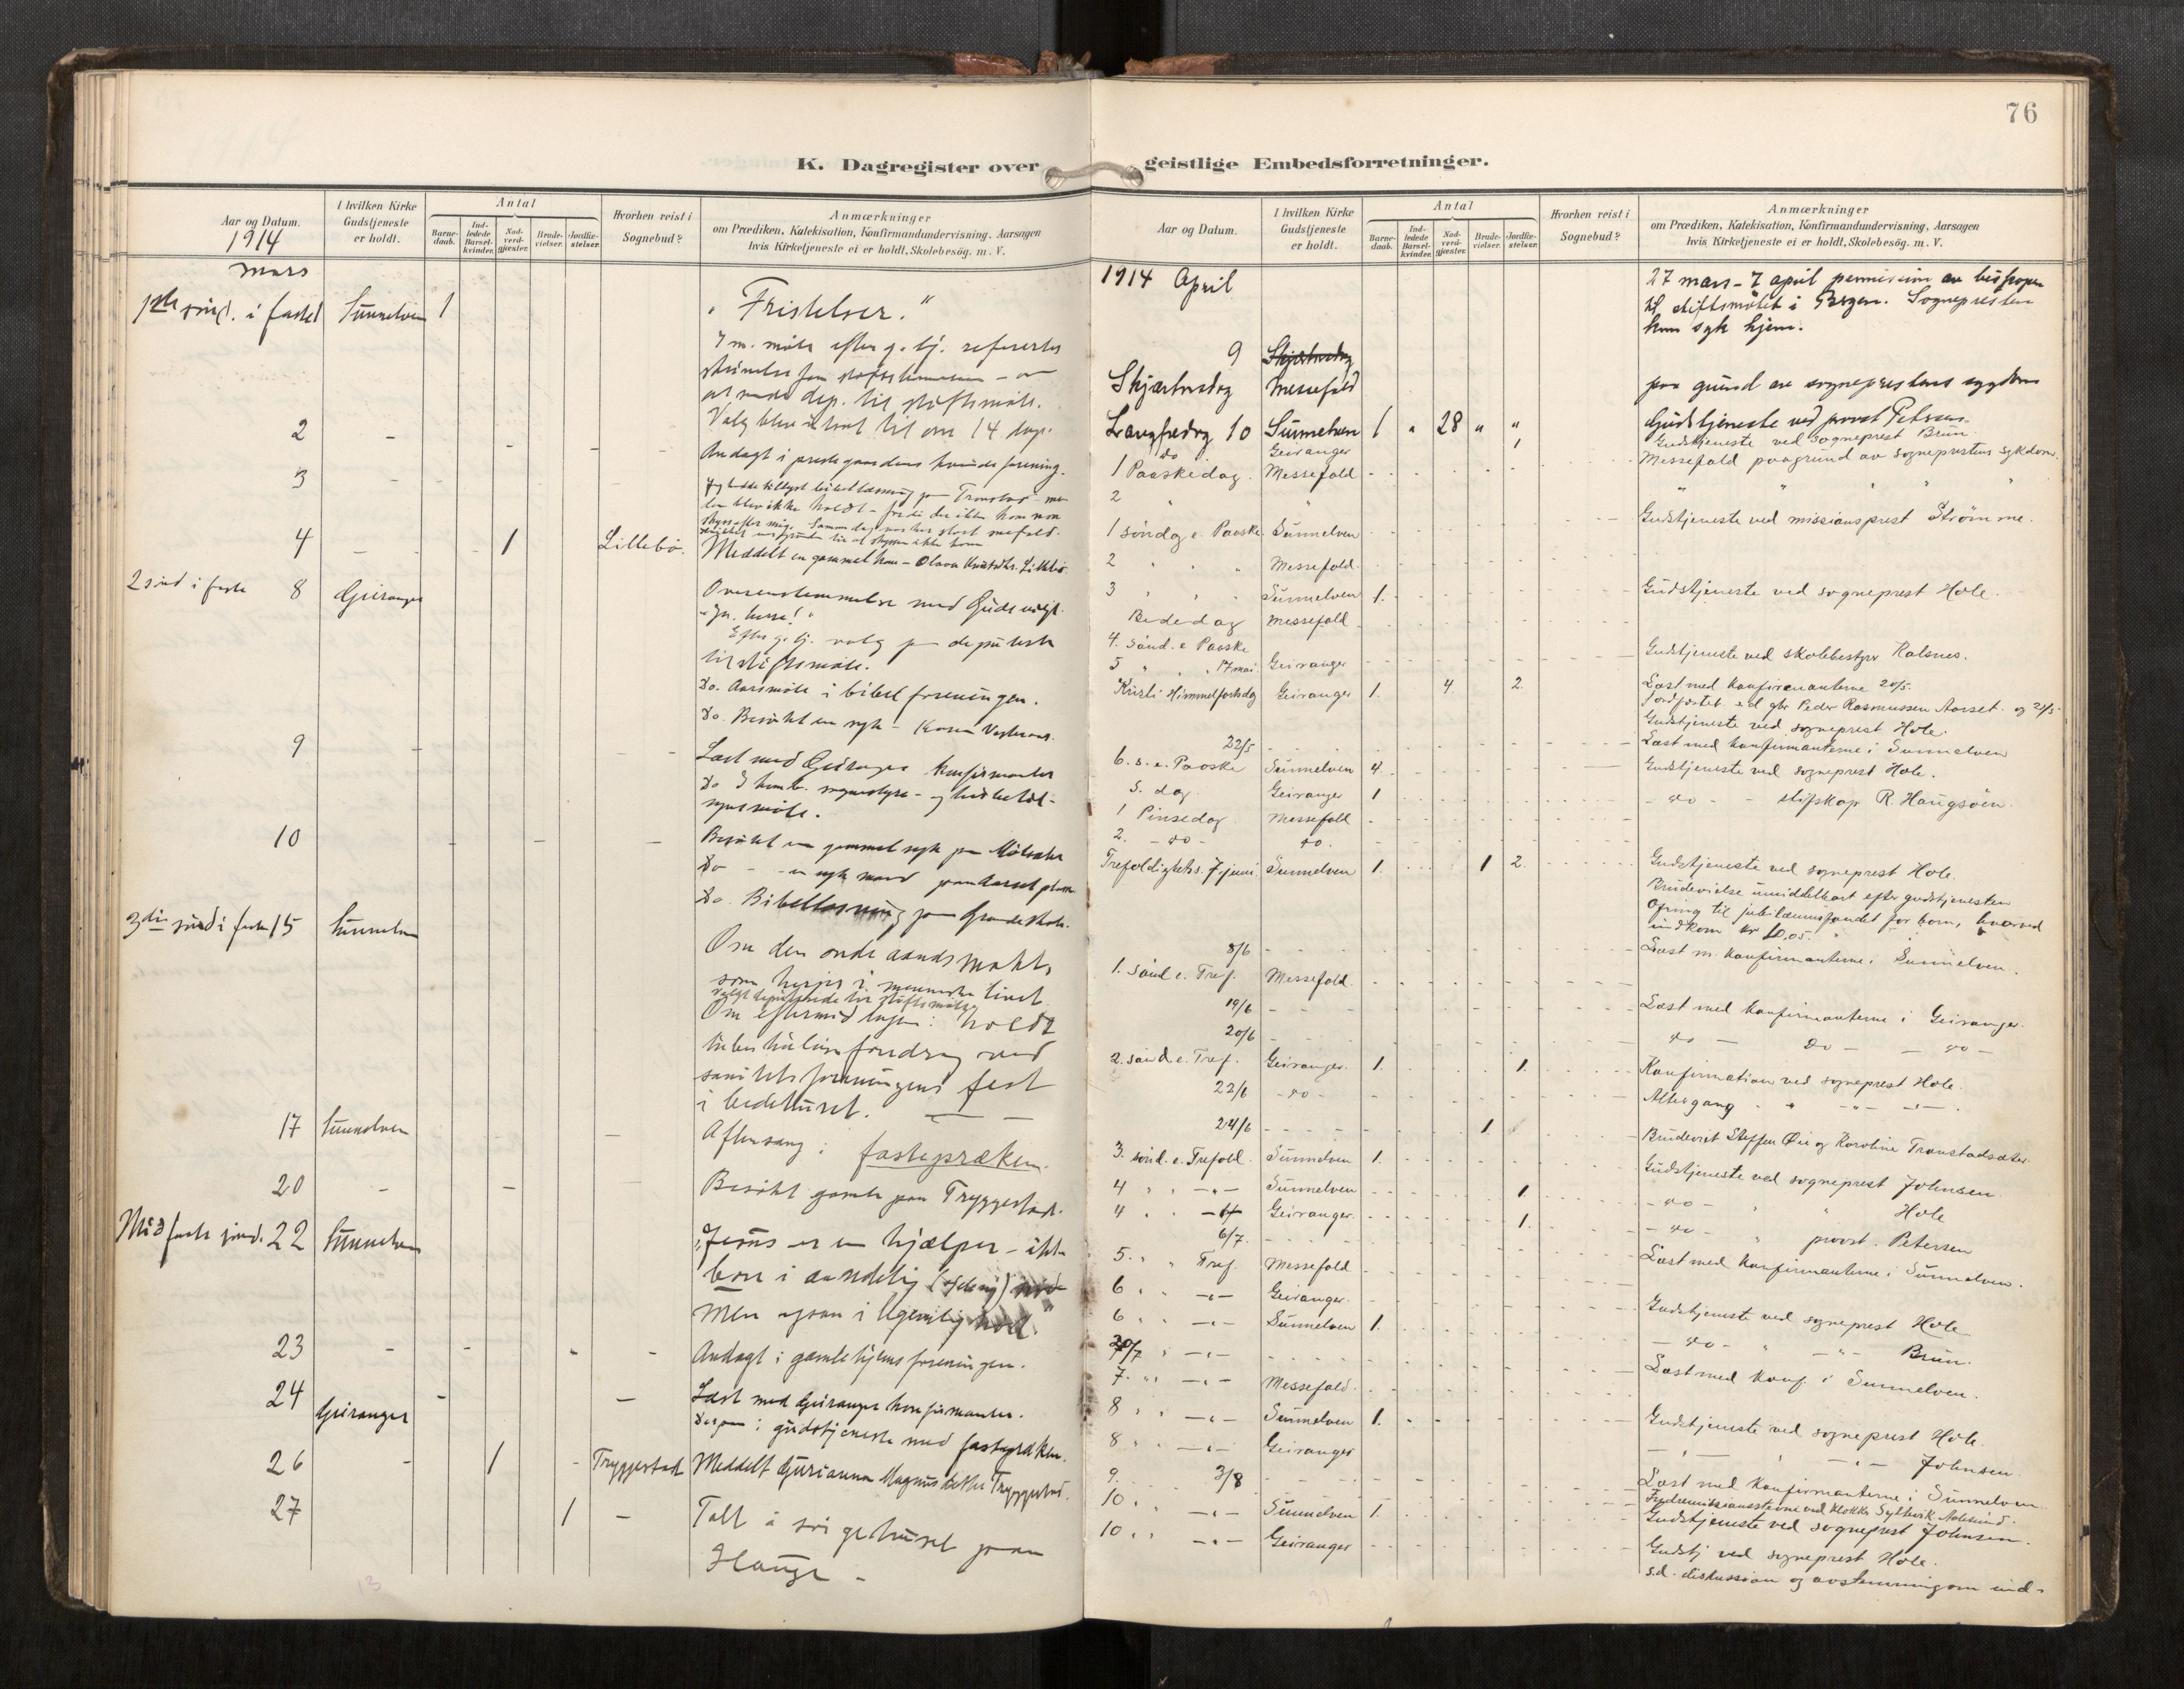 76
K. Dagregister over geistlige Embedsforretninger.
Aar og Datum.
I hvilken Kirke Gudstjeneste er holdt.
Antal
Barne-daab.
Ind-ledede Barsel-kvinder.
Nad-verd-gjæster.
Brude-vielser.
Jordfæ-stelser.
Hvorhen reist i Sognebud?
Anmærkninger
om Prædiken, Katekisation, Konfirmandundervisning, Aarsagen
hvis Kirketjeneste ei er holdt, Skolebesög. m. V.
1914
mars
1ste sönd. i faste Sunnelven 1 "Fristelser."
I m. möte efter g. tj. refererte
til stiftsmöte.
2 - Valg blev til om 14 dage.
Andagt i prestegaardens kvindeforening.
3 Tronstad
4 - - 1 Lillebö. Meddelt en gammel kone - Olava Lillebö
2 sönd i faste 8 Geiranger Overensstemmelse med Guds
Efter g. tj. valg paa deputerte
til stiftsmöte.
Do. Aarsmöte i bibelforeningen.
Do. Besökt en syk -
9 Læst med Geiranger konfirmanter
10 Besökt en gammel syk paa
Do - - en syk mand paa
Do. Bibellæsning paa Grande skole.
3die sönd i faste 15 Sunnelven Om den onde aands makt,
som herjer i menneske livet.
Valgt deputerede til stiftsmöte
Om eftermiddagen: holdt
tuberkulose foredrag ved
sanitetsforeningens fest
i bedehuset.
17 Sunnelven Aftensang: fastepræken.
20 - - Besökt gamle paa Tryggestad.
Midfaste sönd. 22 Sunnelven "Jesus er en hjælper - ikke
bare i aandelig nöd
Men ogsaa i legemlig nöd."
23 - - Andagt i gamlehjemsforeningen.
24 Geiranger - Læst med Geiranger konfirmanter.
gudstjeneste med fastepræken.
26 - 1 - Tryggestad Meddelt Tryggestad.
27 1 - Talt i sörgehuset paa
Hauge -
Aar og Datum.
I hvilken Kirke Gudstjeneste er holdt.
Antal
Barne-daab.
Ind-ledede Barsel-kvinder.
Nad-verd-gjæster.
Brude-vielser.
Jordfæ-stelser.
Hvorhen reist i Sognebud?
Anmærkninger
om Prædiken, Katekisation, Konfirmandundervisning, Aarsagen
hvis Kirketjeneste ei er holdt, Skolebesög. m. V.
1914 April 27 mars - 7 april permission av biskopen
til stiftsmötet i Bergen. Sognepresten
kom syk hjem.
9 Skjærtorsdag
Skjærtorsdag Messefald paa grund av sogneprestens sygdom
Langfredag 10 Sunnelven 1 " 28 " " Gudstjeneste ved provst Petersen
do Geiranger 1 Gudstjeneste ved sogneprest Brun.
1 Paaskedag. Messefald Messefald paagrund av sogneprestens sykdom.
2 " " " " " "
1 söndag e. Paaske. Sunnelven Gudstjeneste ved missionsprest Strömme.
2 " " " Messefald.
3 " " " Sunnelven 1. Gudstjeneste ved sogneprest Hole.
Bededag Messefald
4. sönd. e Paaske
5 " " 17 mai. Geiranger Gudstjeneste ved skolebestyrer Kalsnes.
Kristi Himmelfartsdag Geiranger 1. 4. 2. Læst med konfirmanterne 20/5. og 21/5
Jordfæstet s.d. gbr Peder Rasmussen Aarset.
Gudstjeneste ved sogneprest Hole.
22/5 Læst med konfirmanterne i Sunnelven
6. s. e. Paaske Sunnelven 4. Gudstjeneste ved sogneprest Hole.
S. dag Geiranger 1 - do - - stiftskap. R. Haugsöen.
1 Pinsedag Messefald
2. - do - do.
Trefoldigheds. 7 juni. Sunnelven 1. 1 2. Gudstjeneste ved sogneprest Hole.
Brudevielse umiddelbart efter gudstjenesten
Ofring til jubilæumsfondet for born, hvorved
indkom kr 10.05.
8/6 Læst m. konfirmanterne i Sunnelven.
1. sönd e. Tref. Messefald.
19/6 Læst med konfirmanterne i Geiranger.
20/6 do - do - - do -
2. sönd. e. Tref. Geiranger. 1. 1. Konfirmation ved sogneprest Hole.
22/6 - do - Altergang - " - " -
24/6 1. Brudeviet Steffen Öie og Karoline Tronstadsæter.
3. sönd. e. Trefold. Sunnelven 1. Gudstjeneste ved sogneprest Johnsen.
4 " " - " - Sunnelven 1. - do - " " Hole
4 " " - " - Geiranger. 1. - do - " provst. Petersen
6/7. Læst med konfirmanterne i Sunnelven.
5. " " Tref. Messefald
6 " " - " - Geiranger. Gudstjeneste ved sogneprest Hole
6 " " - " - Sunnelven 1. - do - " - " - Brun.
20/7 " - " - Læst med konf. i Sunnelven.
7. " " - " - Messefald.
8 " " - " - Sunnelven 1. Gudstjeneste ved sogneprest Hole.
8 " " - " - Geiranger - " - " - " - Johnsen.
9. 3/8 Læst med konfirmanterne i Sunnelven.
Indremissionsstevne ved klokker Syltevik Aalesund.
10 " - " - Sunnelven 1. Gudstjeneste ved sogneprest Johnsen.
10 " " - " - Geiranger Gudstj ved sogneprest Hole.
s.d. diskussion og avstemning om ind-